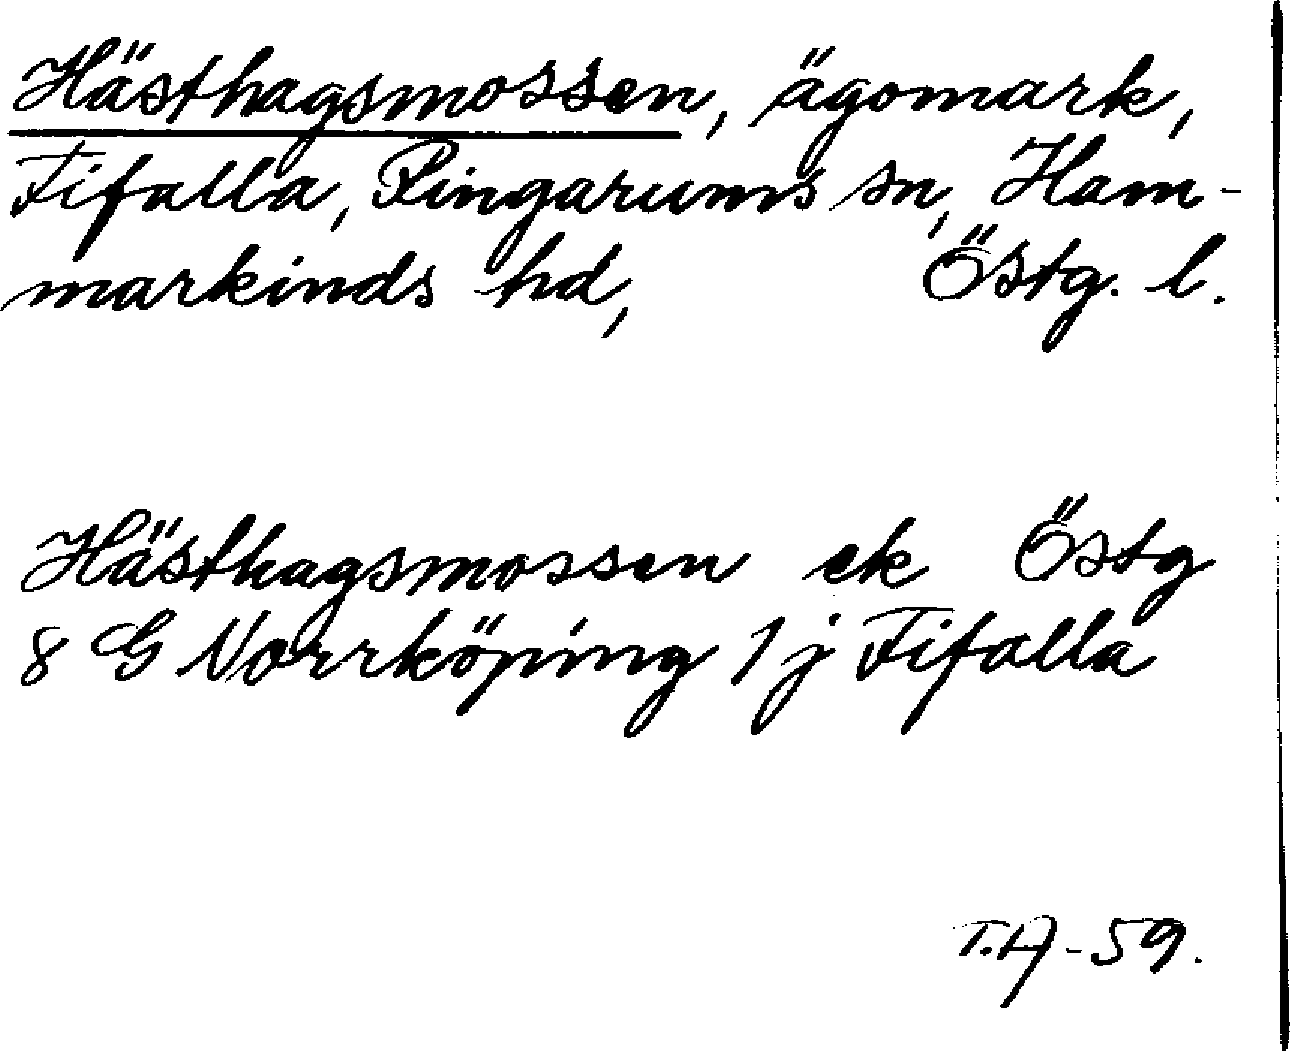 Hästhagsmossen, ägomark,
Fifalla, Ringarums sn, Ham-
markinds hd, Östg. l.
Hästhagsmossen ek Östg
8 G Norrköping 1 j Fifalla
T.A-59.